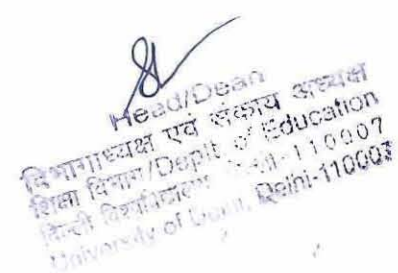 Head/Dean
विभागाध्यक्ष एवं संकाय अध्यक्ष
शिक्षा विभाग/Deptt. of Education
दिल्ली विश्वविद्यालय -110007
University of Delhi, Delhi-110007